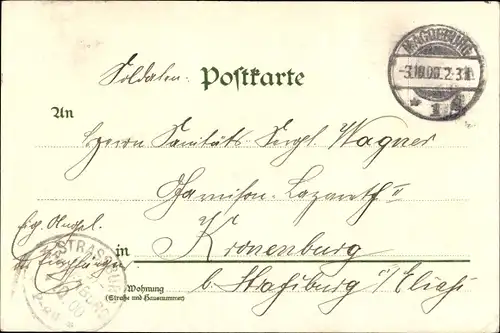 MAGDEBURG
-3.10.00.2-3N.
* 1 *
Soldaten- Postkarte
An
Herrn Sanitäts-Sergt. Wagner
Garnison-Lazareth II
Eig. Angel.
des Empfängers
in Kronenburg
b. Straßburg i/Elsaß
STRASSBURG
Wohnung
(Straße und Hausnummer)